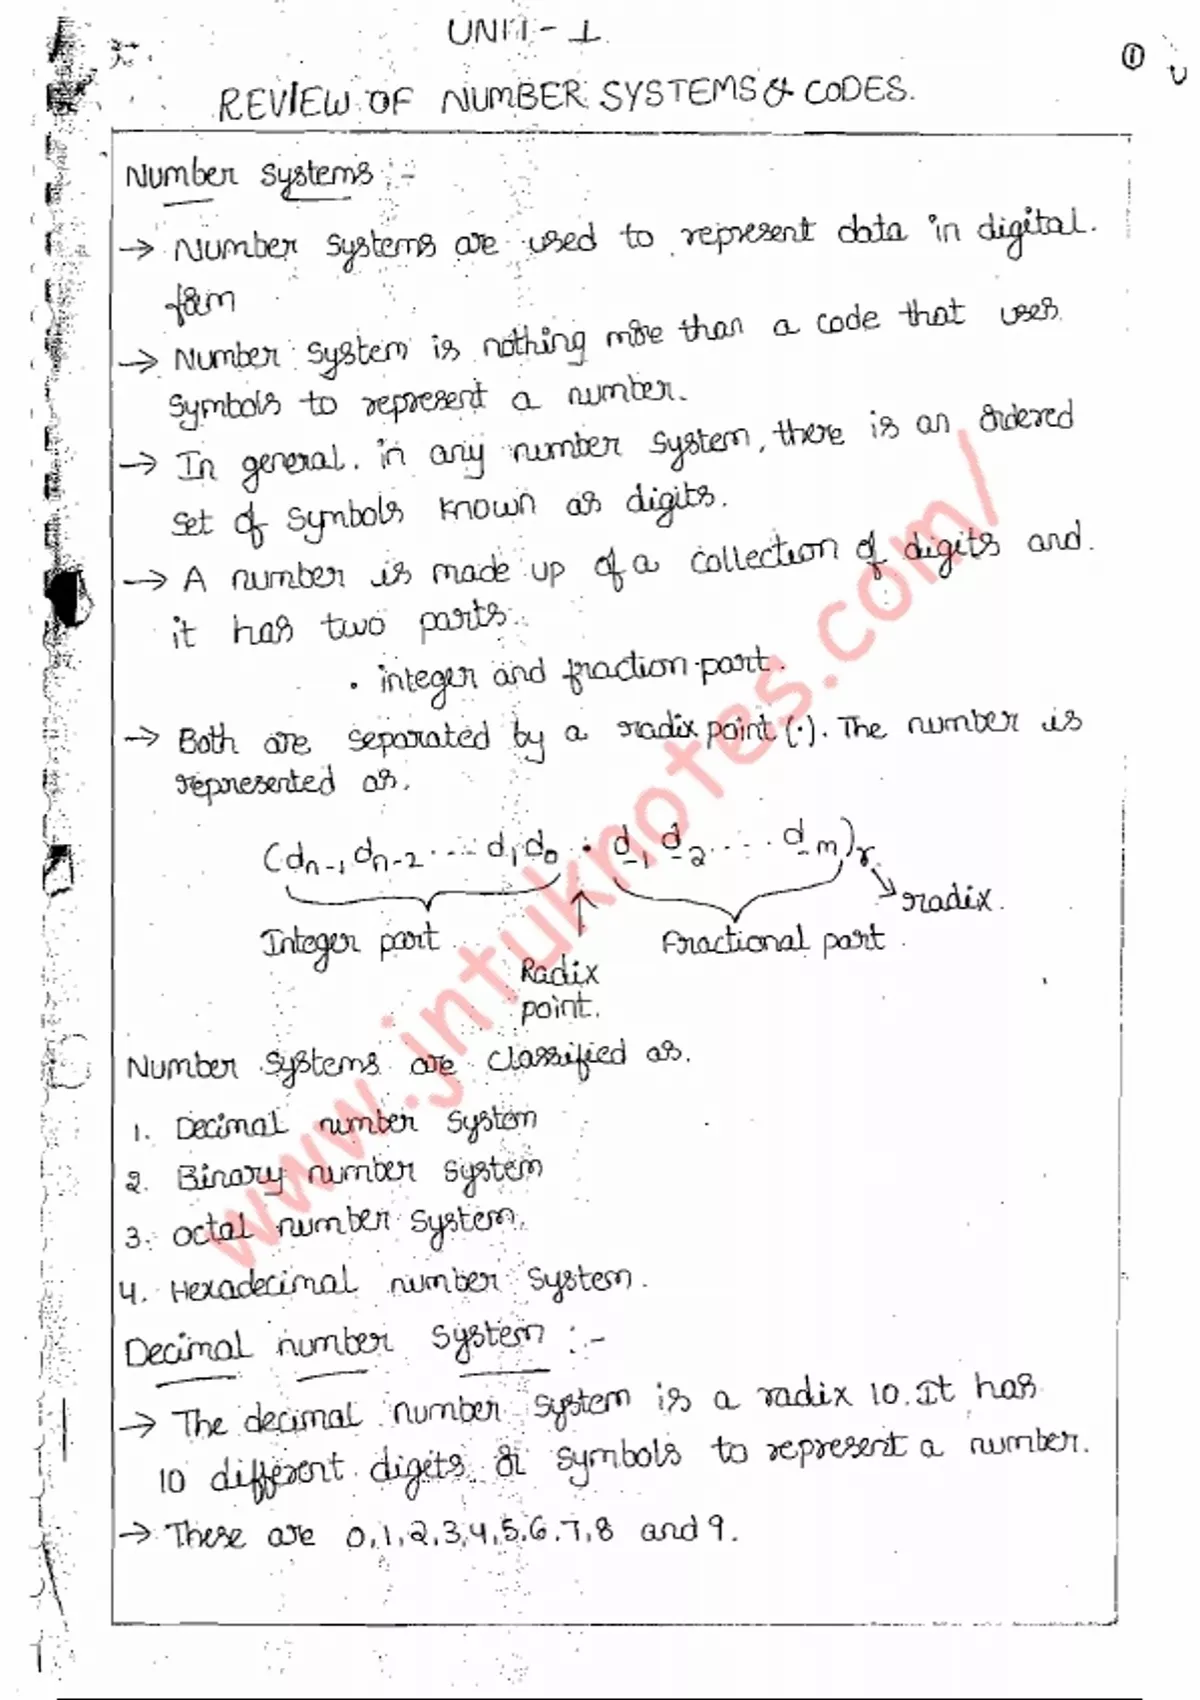 UNIT - I
①
REVIEW OF NUMBER SYSTEMS & CODES.
Number systems :-
→ Number systems are used to represent data in digital.
form
→ Number system is nothing more than a code that uses
symbols to represent a number.
→ In general. in any number system, there is an ordered
set of symbols known as digits.
→ A number is made up of a collection of digits and.
it has two parts.
• integer and fraction part.
→ Both are separated by a radix point (.). The number is
represented as.
(dn-1 dn-2 ---- d1 d0 . d-1 d-2 ---- d-m)r
radix.
Integer part
Fractional part.
Radix
point.
Number systems are classified as.
1. Decimal number system
2. Binary number system
3. octal number system.
4. Hexadecimal number system.
Decimal number system :-
→ The decimal number system is a radix 10. It has
10 different digits or symbols to represent a number.
→ These are 0,1,2,3,4,5,6,7,8 and 9.
www.jntuknotes.com/